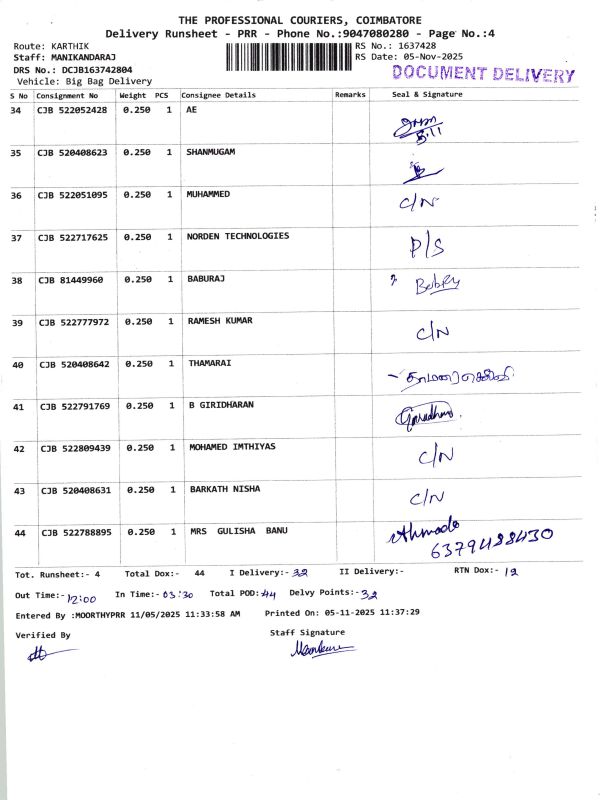 THE PROFESSIONAL COURIERS, COIMBATORE
Delivery Runsheet - PRR - Phone No.:9047080280 - Page No.:4
Route: KARTHIK RS No.: 1637428
Staff: MANIKANDARAJ RS Date: 05-Nov-2025
DRS No.: DCJB163742804 DOCUMENT DELIVERY
Vehicle: Big Bag Delivery
S No Consignment No Weight PCS Consignee Details Remarks Seal & Signature
34 CJB 522052428 0.250 1 AE
5.11
35 CJB 520408623 0.250 1 SHANMUGAM
36 CJB 522051095 0.250 1 MUHAMMED C/N
37 CJB 522717625 0.250 1 NORDEN TECHNOLOGIES P/S
38 CJB 81449960 0.250 1 BABURAJ
39 CJB 522777972 0.250 1 RAMESH KUMAR C/N
40 CJB 520408642 0.250 1 THAMARAI
41 CJB 522791769 0.250 1 B GIRIDHARAN
42 CJB 522809439 0.250 1 MOHAMED IMTHIYAS C/N
43 CJB 520408631 0.250 1 BARKATH NISHA C/N
44 CJB 522788895 0.250 1 MRS GULISHA BANU
Tot. Runsheet:- 4 Total Dox:- 44 I Delivery:- 32 II Delivery:- RTN Dox:- 12
Out Time:- 12:00 In Time:- 03:30 Total POD:- 44 Delvy Points:- 32
Entered By :MOORTHYPRR 11/05/2025 11:33:58 AM Printed On: 05-11-2025 11:37:29
Verified By Staff Signature